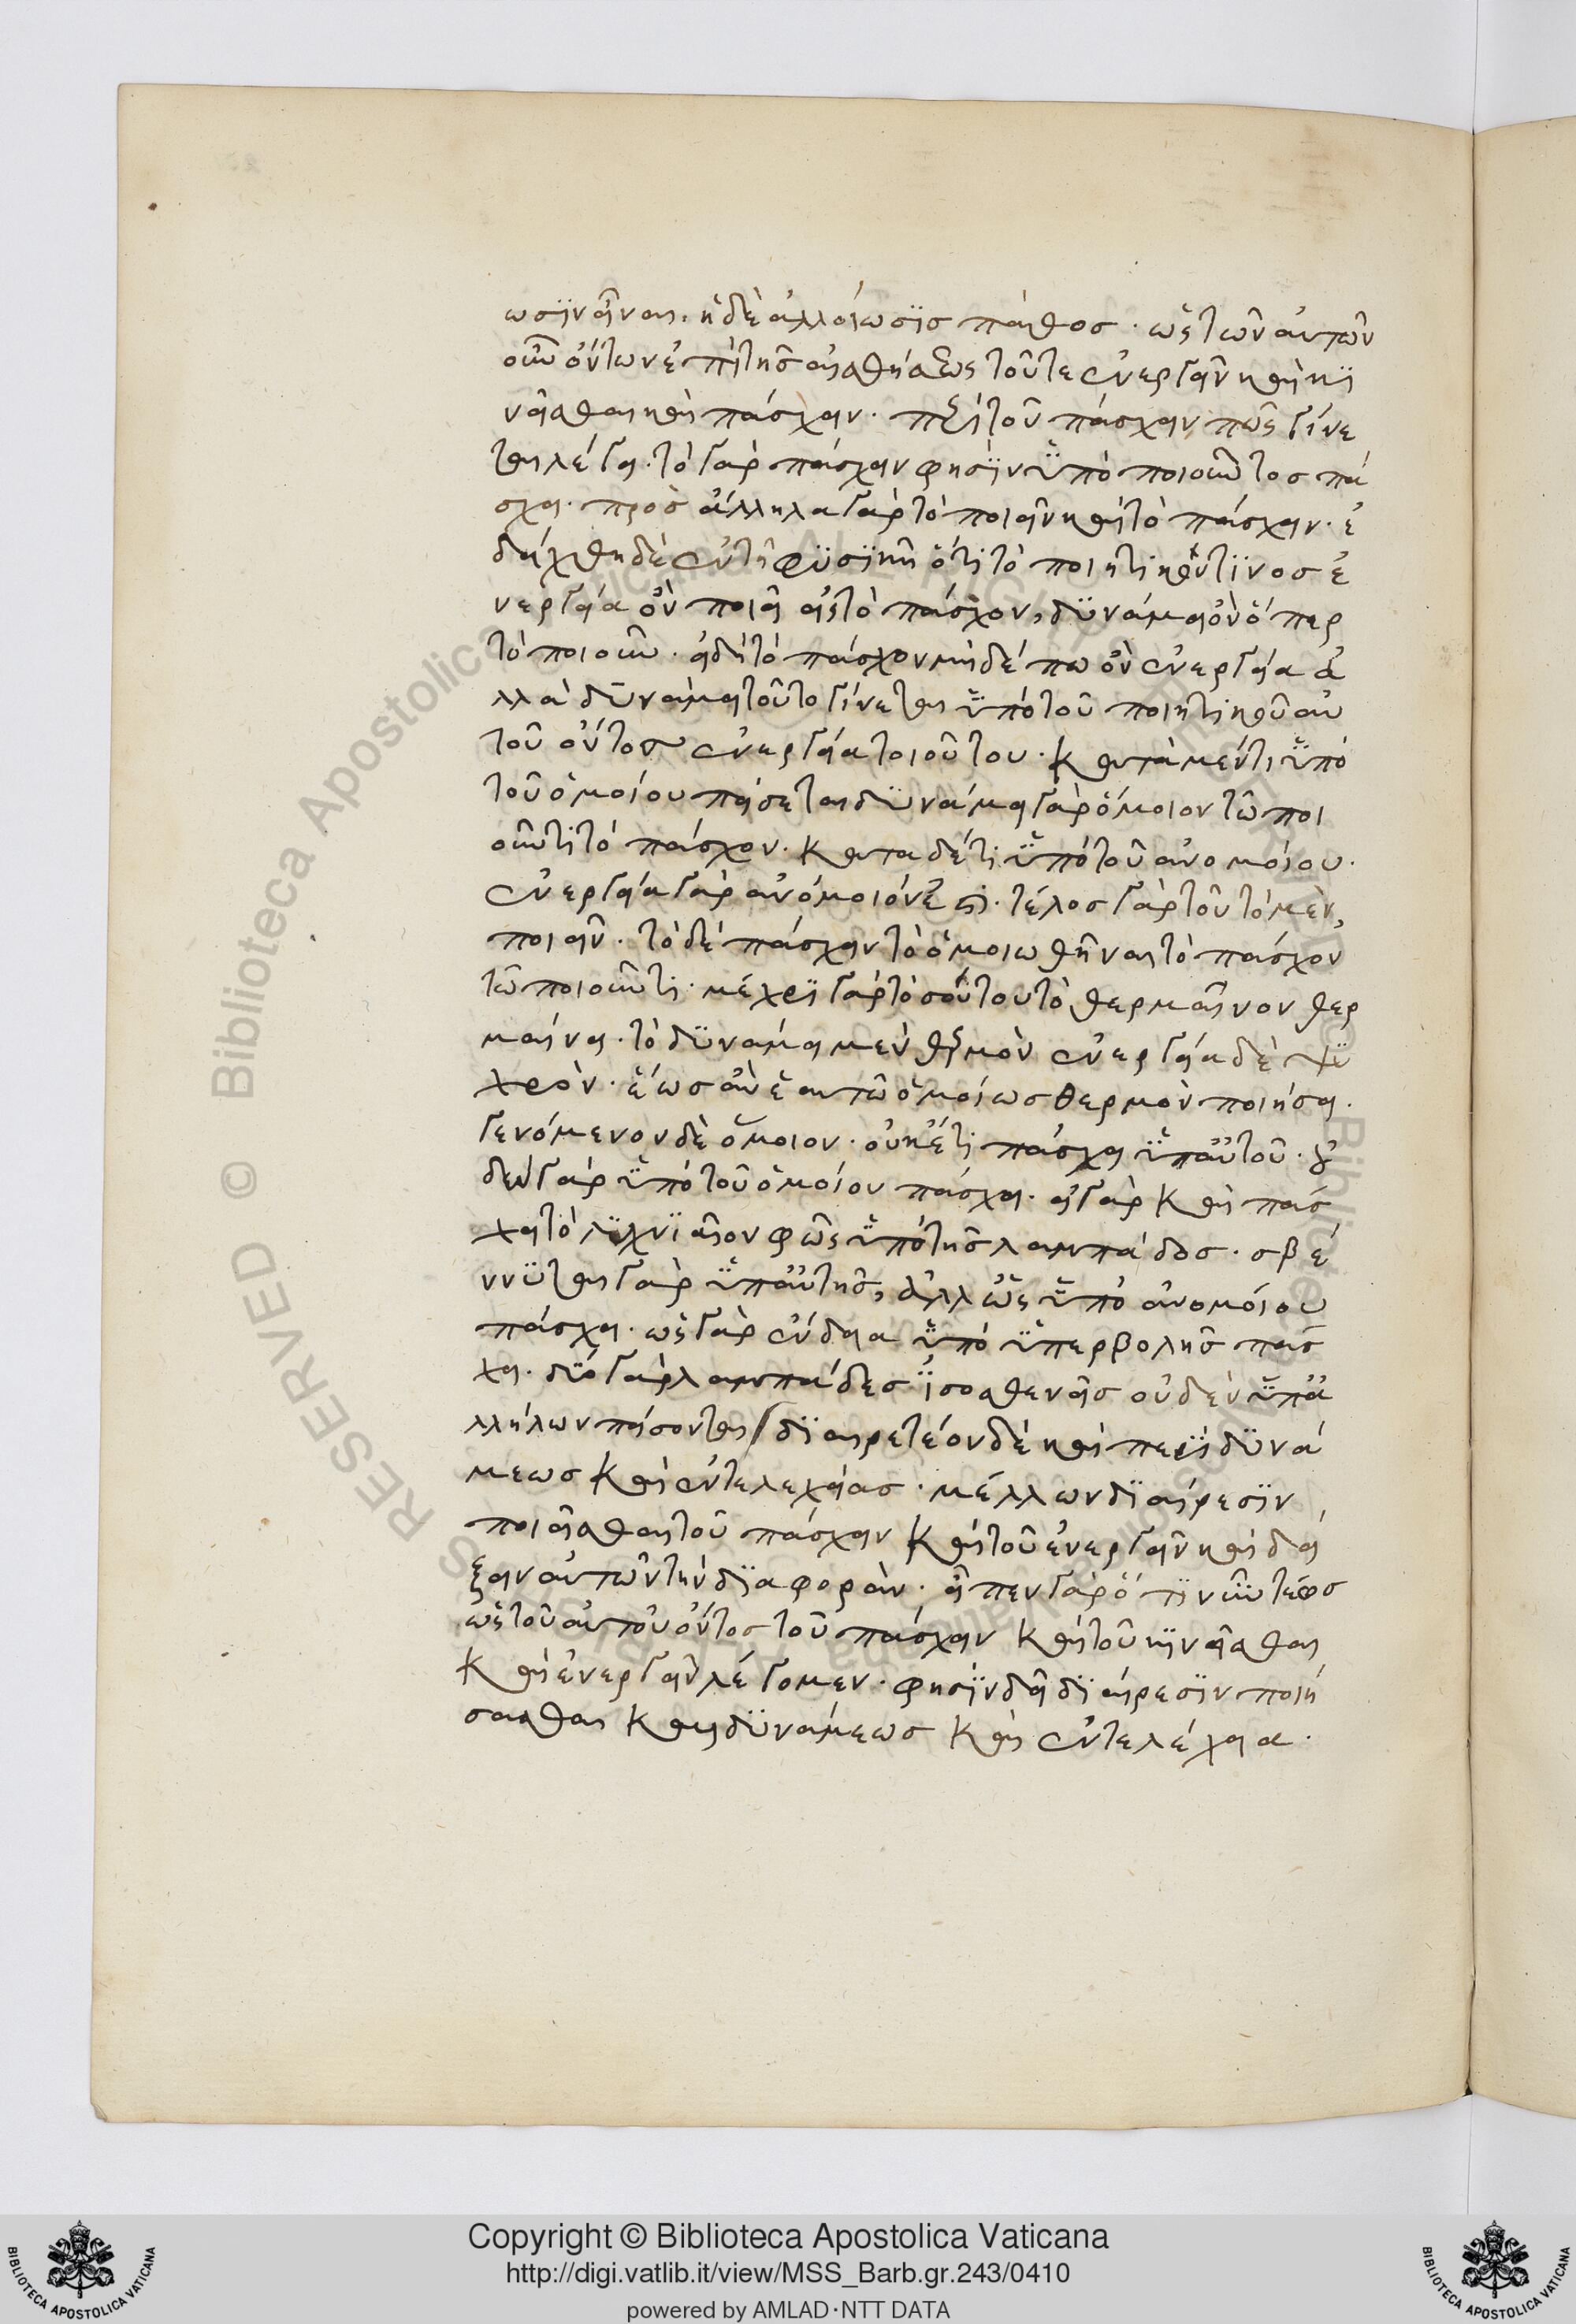 ωσϊν εἶναι. ἡ δὲ ἀλλοίωσϊς πάθος. ὡς τῶν αὐτῶν
οὖν ὄντων ἐπὶ τῆς αἰσθήσεως τοῦ τε ἐνεργεῖν καὶ κϊ
νεῖσθαι καὶ πάσχειν. περὶ τοῦ πάσχειν πῶς γίνε
ται λέγει. τὸ γὰρ πάσχειν φησὶν ὑπὸ ποιοῦντος πά
σχει. πρὸς ἄλληλα γὰρ τὸ ποιεῖν καὶ τὸ πάσχειν. ἐ
δείχθη δὲ ἐν τῆ φϋσϊκῆ ὅτι τὸ ποιητικόν τϊνος ἐ
νεργεία ὂν ποιεῖ εἰς τὸ πάσχον, δϋνάμει ὂν ὅπερ
τὸ ποιοῦν. εἰ δὴ τὸ πάσχον μηδέπω ὂν ἐνεργεία ἀ
λλὰ δυνάμει τοῦτο γίνεται ὑπὸ τοῦ ποιητικοῦ αὐ
τοῦ ὄντος ἐνεργεία τοιούτου. κατὰ μέν τι ὑπὸ
τοῦ ὁμοίου πείσεται δϋνάμει γὰρ ὅμοιον τῶ ποι
οῦντι τὸ πάσχον. κατὰ δέ τι ὑπὸ τοῦ ἀνομοίου.
ἐνεργεία γὰρ ἀνόμοιόν ἐστι. τέλος γὰρ τοῦτο μὲν,
ποιεῖν. τὸ δὲ πάσχειν τὸ ὁμοιωθῆναι τὸ πάσχον
τῶ ποιοῦντι. μέχρϊ γὰρ τοσούτου τὸ θερμαῖνον θερ
μαίνει. τὸ δϋνάμει μὲν θερμὸν ἐνεργεία δὲ ψϋ
χρὸν. ἕως ἂν ἑαυτῶ ὁμοίως θερμὸν ποιήσει.
γενόμενον δὲ ὅμοιον. οὐκέτι πάσχει ὑπ αὐτοῦ. οὐ
δὲν γὰρ ὑπὸ τοῦ ὁμοίου πάσχει. εἰ γὰρ καὶ πάσ
χει τὸ λϋχνϊαῖον φῶς ὑπὸ τῆς λαμπάδος. σβέ
ννϋται γὰρ ὑπ αὐτῆς, ἀλλ ὡς ὑπὸ ἀνομοίου
πάσχει. ὡς γὰρ ἔνδεια ὑπὸ ὑπερβολῆς πάσ
χει. δϋο γὰρ λαμπάδες ϊσοσθενεῖς οὐδὲν ὑπ ἀ
λλήλων πείσονται / δϊαιρετέον δὲ καὶ περϊ δϋνά
μεως καὶ ἐντελεχείας. μέλλων δϊαίρεσϊν
ποιεῖσθαι τοῦ πάσχειν καὶ τοῦ ἐνεργεῖν καὶ δεί
ξειν αὐτῶν τὴν δϊαφορὰν. εἶπεν γὰρ ὅτϊ νῦν τέως
ὡς τοῦ αὐτοῦ ὄντος τοῦ πάσχειν καὶ τοῦ κϊνεῖσθαι
καὶ ἐνεργεῖν λέγομεν. φησὶν δεῖ δϊαίρεσϊν ποιή
σασθαι καὶ δϋνάμεως καὶ ἐντελέχεια.
Copyright © Biblioteca Apostolica Vaticana
http://digi.vatlib.it/view/MSS_Barb.gr.243/0410
powered by AMLAD·NTT DATA